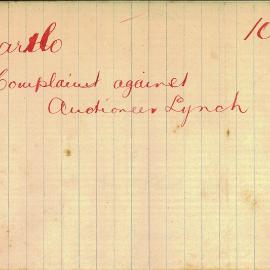 10
Complaint against
Auctioneer Lynch